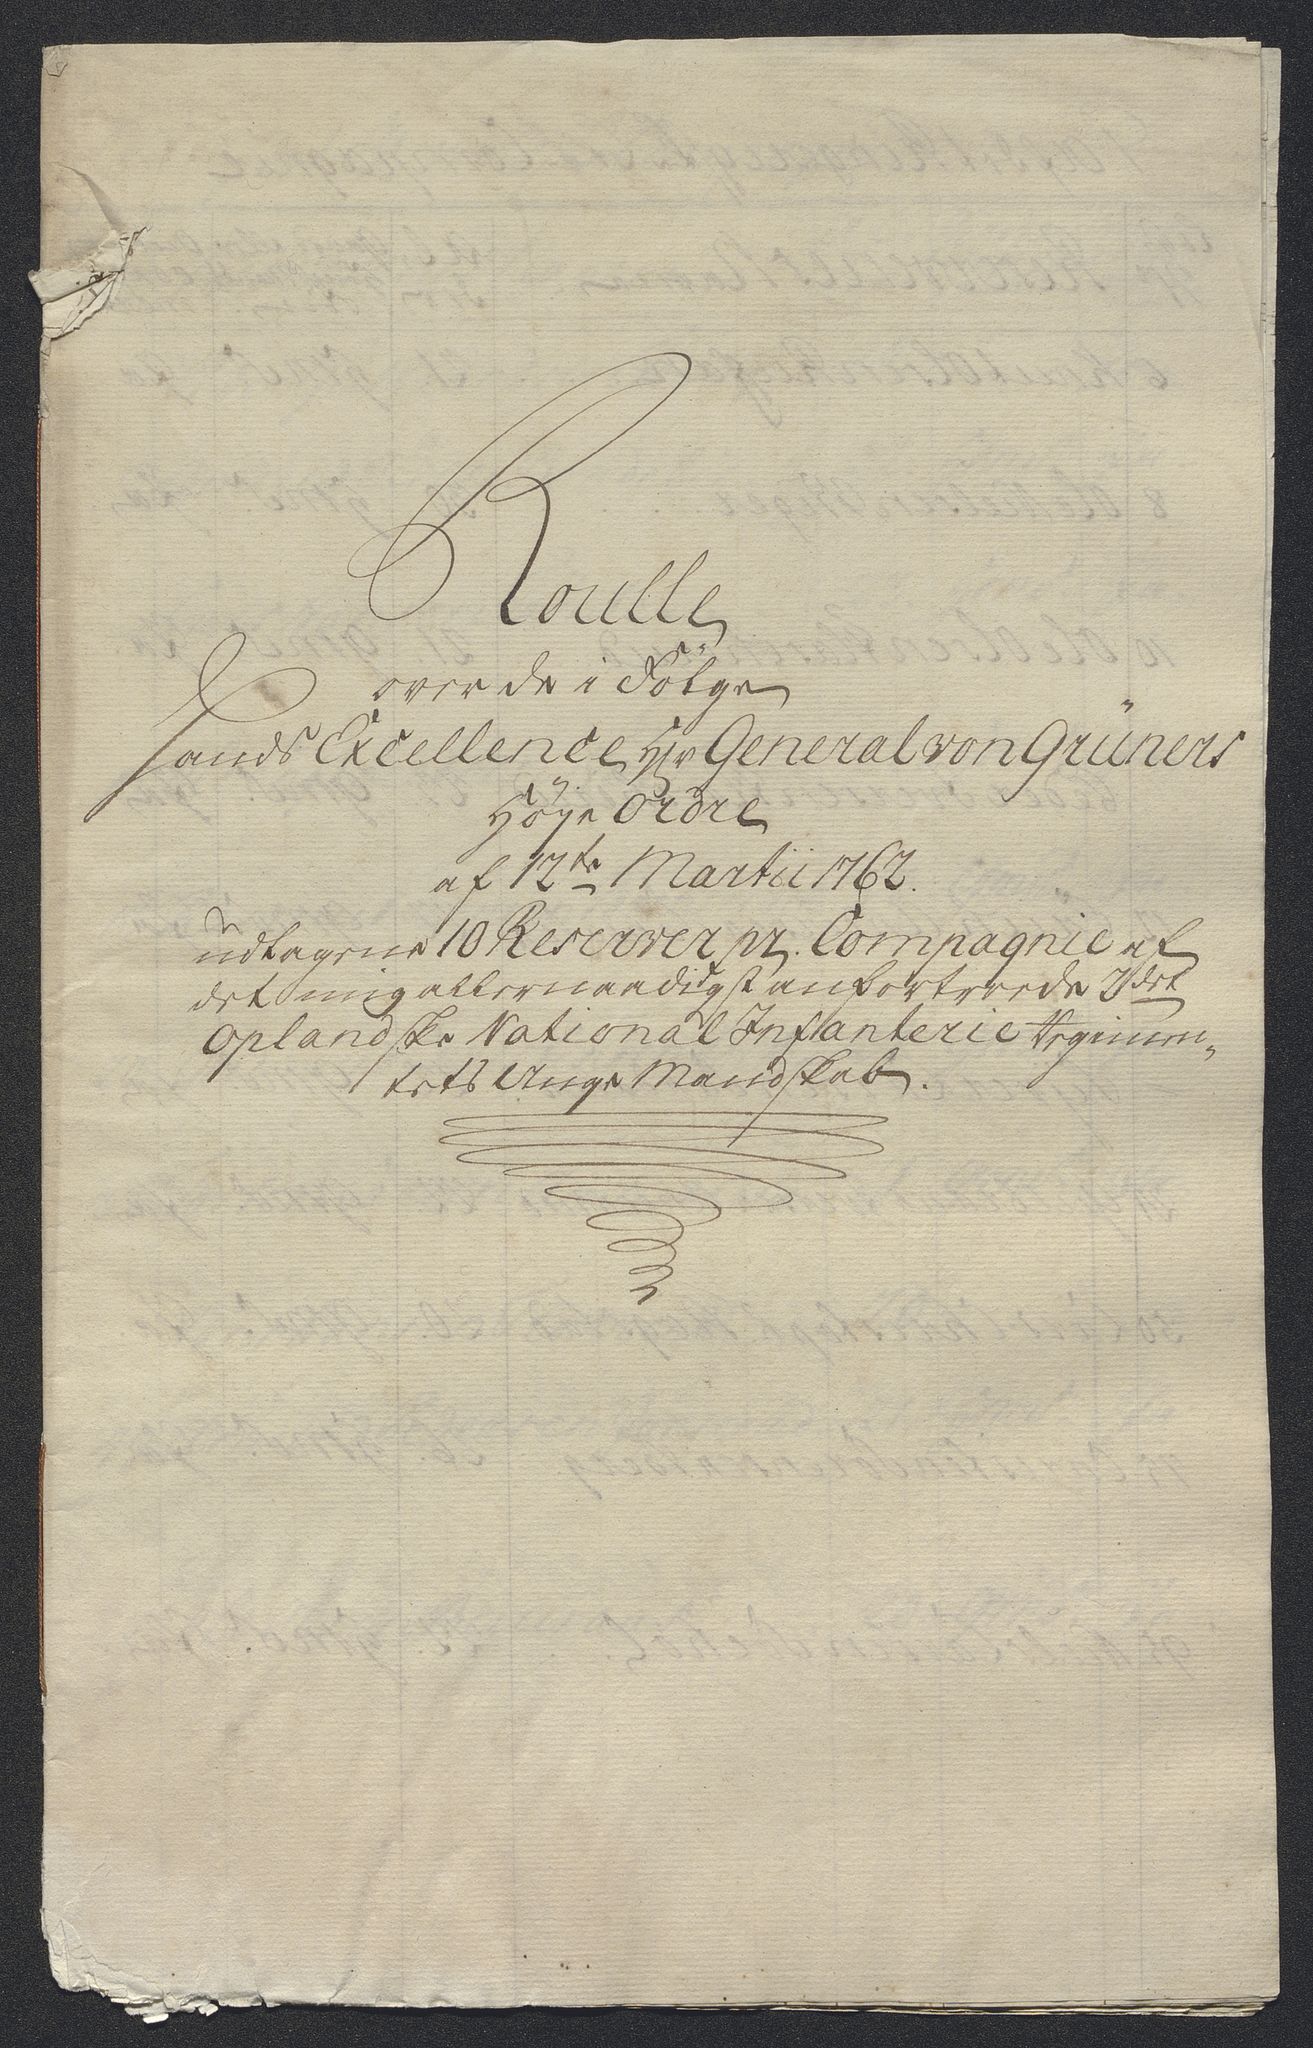 Roulle
over de i Følge
Hands Excellence Hr General von Grüners
Høye Ordre
af 12te Martii 1762.
udtagene 10 Reserver pr. Compagnie af
det mig allernaadigst anfortroede 2det
Oplandske National Infanterie Regimen-
tets Unge Mandskab.